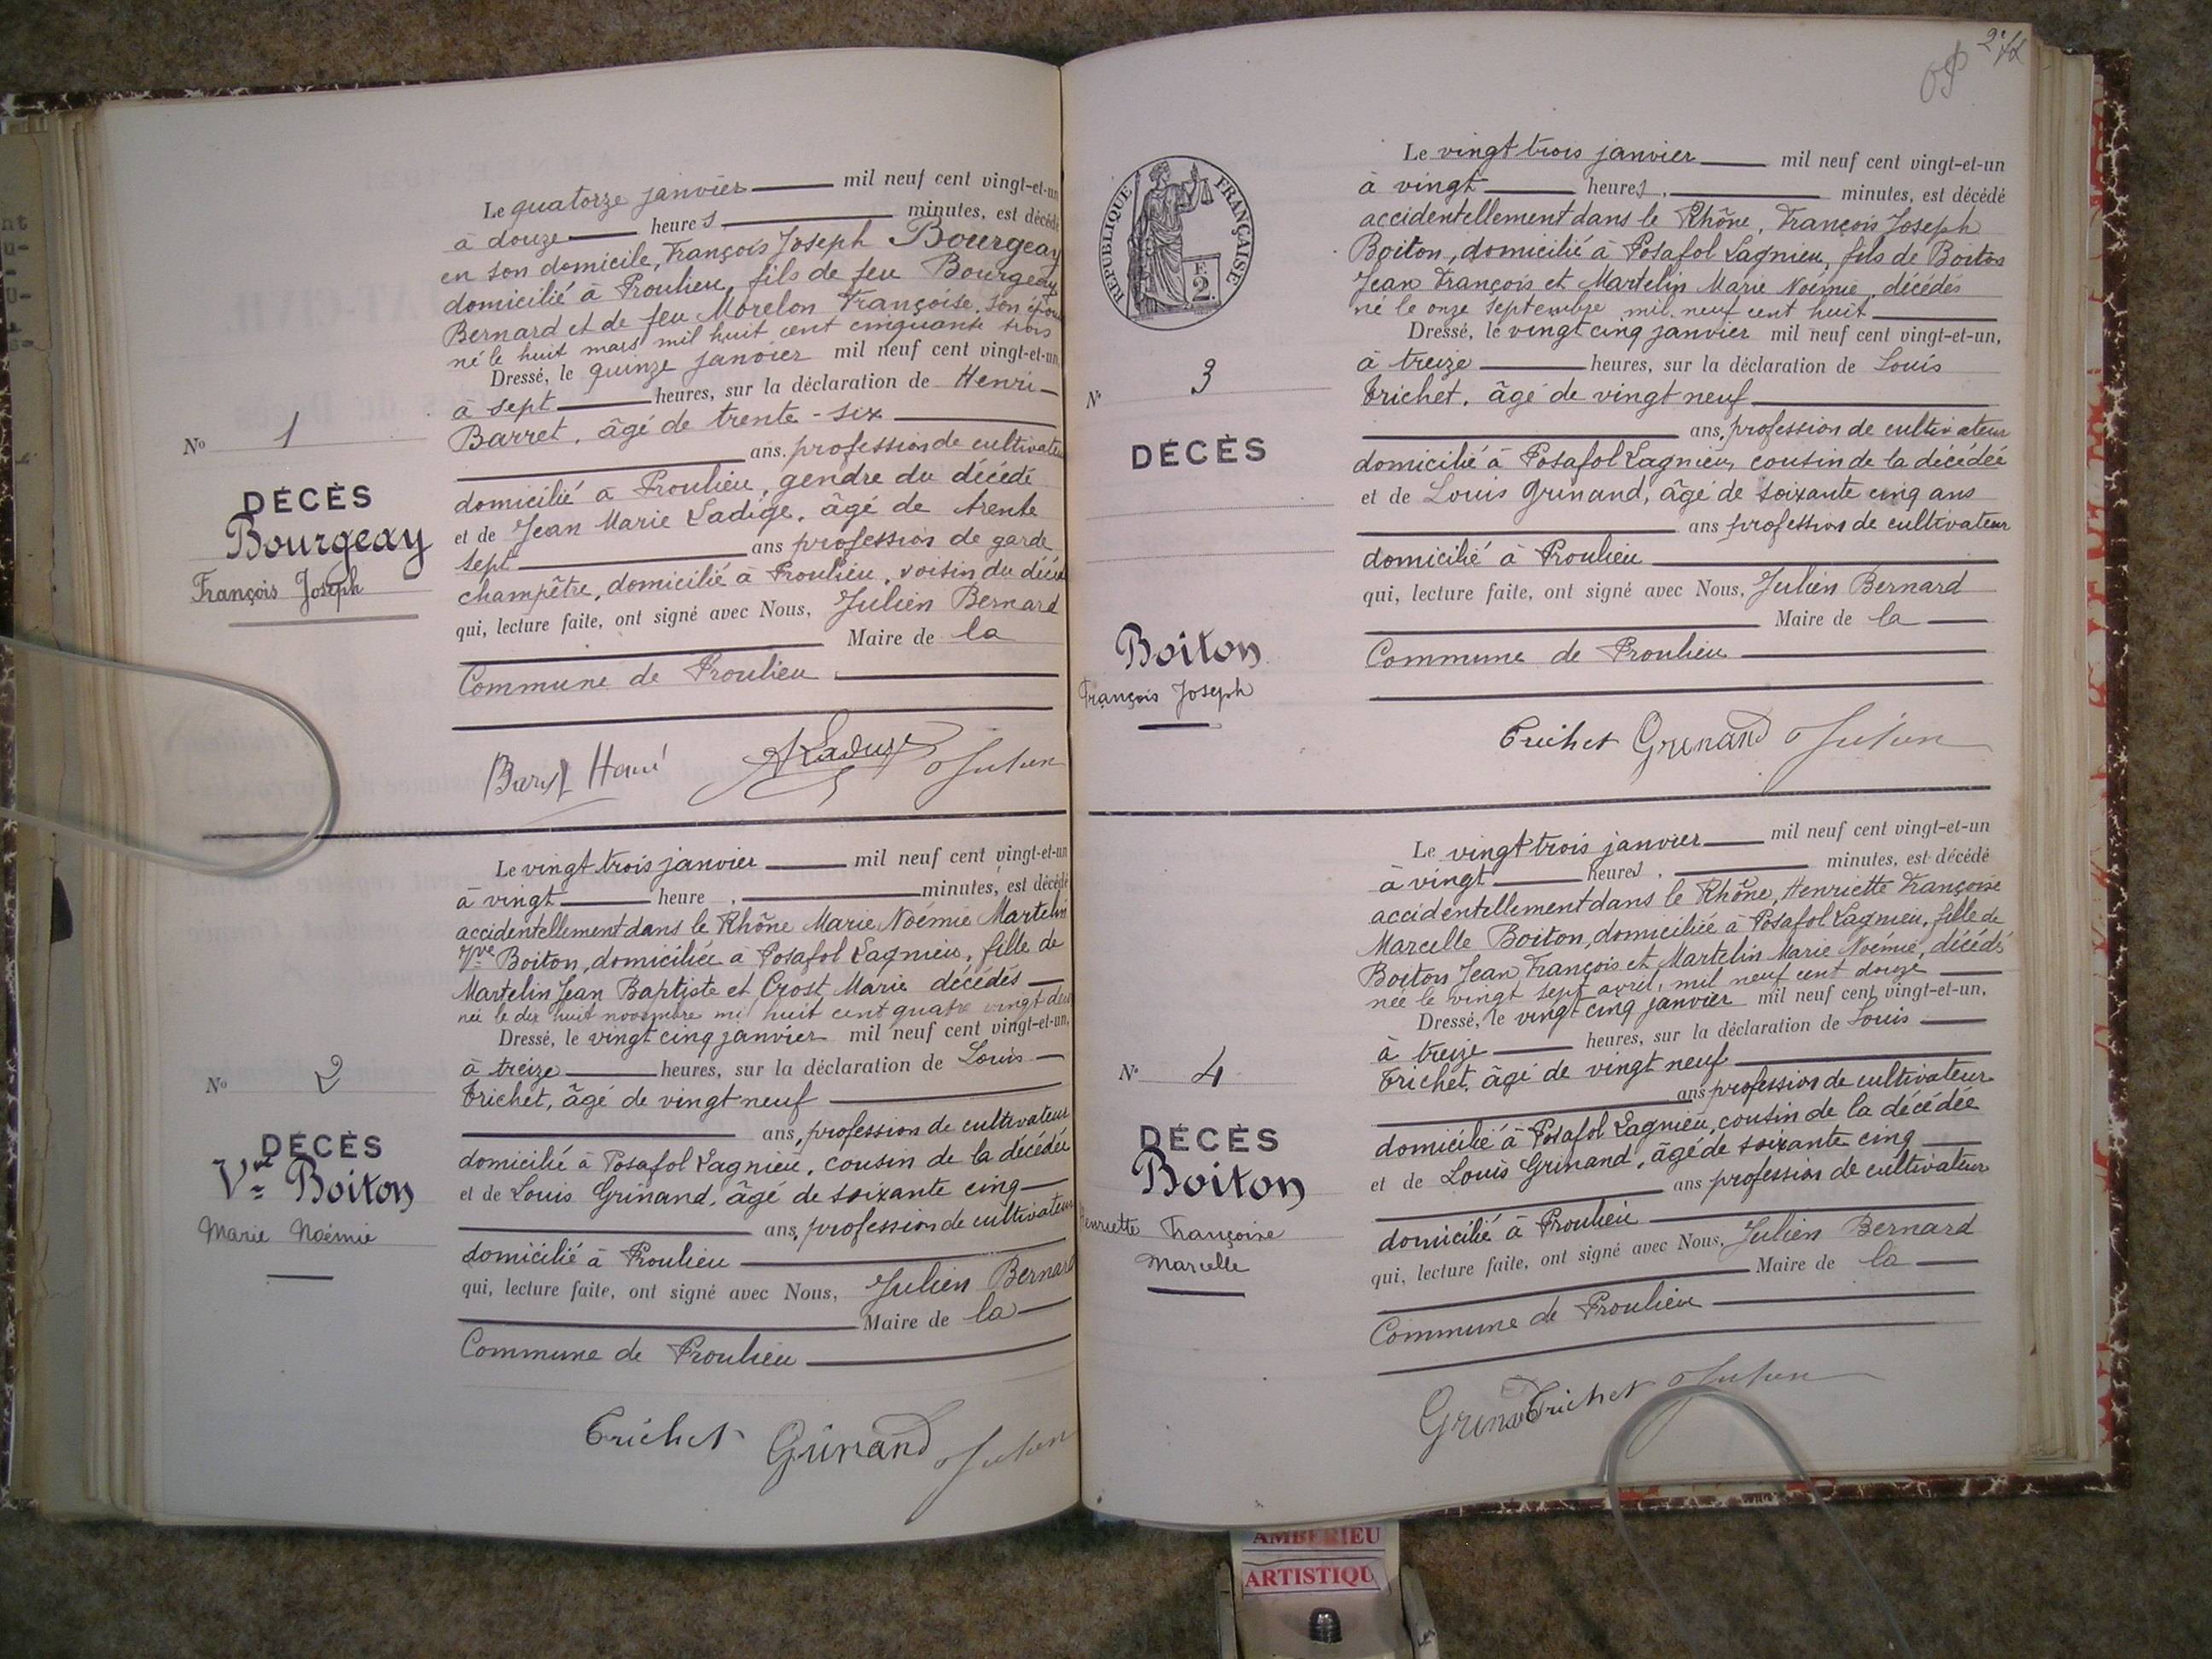 Le quatorze janvier mil neuf cent vingt-et-un
à douze heures minutes, est décédé
en son domicile, François Joseph Bourgeay
domicilié à Proulieu, fils de feu Bourgeay
Bernard et de feu Morelon Françoise, son
né le huit mars mil huit cent cinquante trois
Dressé, le quinze janvier mil neuf cent vingt-et-un,
à sept heures, sur la déclaration de Henri
Barret, âgé de trente-six
ans, profession de cultivateur
domicilié à Proulieu, gendre du décédé
et de Jean Marie Ladige, âgé de trente
sept ans profession de garde
champêtre, domicilié à Proulieu, voisin du
qui, lecture faite, ont signé avec Nous, Julien Bernard
Maire de la
Commune de Proulieu
No 1
DÉCÈS
Bourgeay
François Joseph
Barret Henri Ladige Julien
Le vingt trois janvier mil neuf cent vingt-et-un
à vingt heure minutes, est décédé
accidentellement dans le Rhône Marie Noémie Martelin
Vve Boiton, domiciliée à Posafol Lagnieu, fille de
Martelin Jean Baptiste et Crost Marie décédés
née le dix huit novembre mil huit cent quatre vingt
Dressé, le vingt cinq janvier mil neuf cent vingt-et-un,
à treize heures, sur la déclaration de Louis
Trichet, âgé de vingt neuf
ans, profession de cultivateur
domicilié à Posafol Lagnieu, cousin de la décédée
et de Louis Grinand, âgé de soixante cinq
ans, profession de cultivateur
domicilié à Proulieu
qui, lecture faite, ont signé avec Nous, Julien Bernard
Maire de la
Commune de Proulieu
No 2
DÉCÈS
Vve Boiton
Marie Noémie
Trichet Grinand Julien
RÉPUBLIQUE FRANÇAISE
2
Le vingt trois janvier mil neuf cent vingt-et-un
à vingt heures, minutes, est décédé
accidentellement dans le Rhône, François Joseph
Boiton, domicilié à Posafol Lagnieu, fils de Boiton
Jean François et Martelin Marie Noémie, décédés
né le onze septembre mil neuf cent huit
Dressé, le vingt cinq janvier mil neuf cent vingt-et-un,
à treize heures, sur la déclaration de Louis
Trichet, âgé de vingt neuf
ans, profession de cultivateur
domicilié à Posafol Lagnieu, cousin de la décédée
et de Louis Grinand, âgé de soixante cinq ans
ans profession de cultivateur
domicilié à Proulieu
qui, lecture faite, ont signé avec Nous, Julien Bernard
Maire de la
Commune de Proulieu
N° 3
DÉCÈS
Boiton
François Joseph
Trichet Grinand Julien
Le vingt trois janvier mil neuf cent vingt-et-un
à vingt heures, minutes, est décédé
accidentellement dans le Rhône, Henriette Françoise
Marcelle Boiton, domiciliée à Posafol Lagnieu, fille de
Boiton Jean François et Martelin Marie Noémie, décédés
née le vingt sept avril, mil neuf cent douze
Dressé, le vingt cinq janvier mil neuf cent vingt-et-un,
à treize heures, sur la déclaration de Louis
Trichet, âgé de vingt neuf
ans profession de cultivateur
domicilié à Posafol Lagnieu, cousin de la décédée
et de Louis Grinand, âgé de soixante cinq
ans profession de cultivateur
domicilié à Proulieu
qui, lecture faite, ont signé avec Nous, Julien Bernard
Maire de la
Commune de Proulieu
N° 4
DÉCÈS
Boiton
Henriette Françoise
Marcelle
Grinand Trichet Julien
AMBERIEU
ARTISTIQU